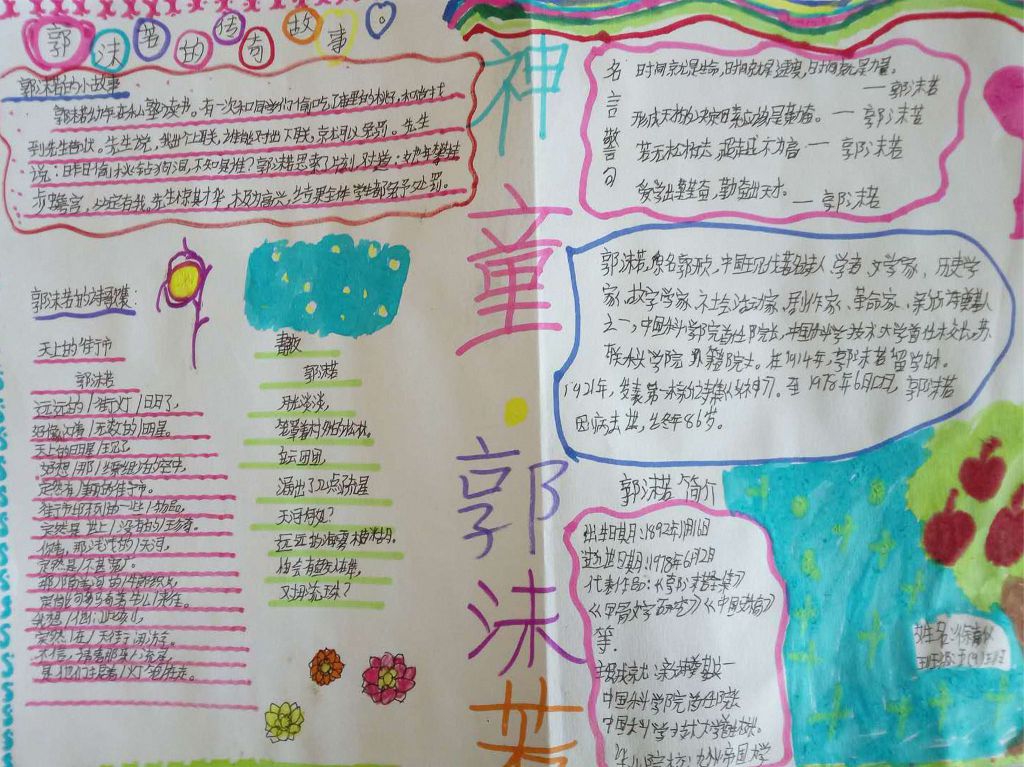 郭沫若的传奇故事
郭沫若的小故事
郭沫若幼年在私塾读书。有一次和同学们偷吃了庙里的桃子,和尚找
到先生告状。先生说,我出个上联,谁能对出下联,就可以免罚。先生
说:昨日偷桃钻狗洞,不知是谁?郭沫若思索了一会儿对道:他年攀桂
步蟾宫,必定有我。先生惊其才华,极为高兴,结果全体学生都免予处罚。
郭沫若的诗歌:
天上的街市
郭沫若
远远的/街灯/明了,
好像闪着/无数的/明星。
天上的明星/现了,
我想/那/缥缈的空中,
定然有/美丽的街市。
街市上陈列的一些/物品,
定然是/世上/没有的/珍奇。
你看,那浅浅的/天河,
定然是/不甚宽广。
我想他们/此刻,
定然/在/天街/闲游。
不信,请看那朵/流星,
是他们提着/灯笼在走。
郭沫若
月光淡淡,
笼罩着村外的松林,
白云团团,
漏出了几点疏星
天河何处?
远远的海雾模糊,
怕会有鲛人在岸,
对月流珠?
神童·郭沫若
名言警句
时间就是生命,时间就是速度,时间就是力量。
—郭沫若
形成天才的决定因素应该是勤奋。— 郭沫若
— 郭沫若
爱学出勤奋,勤奋出天才。
— 郭沫若
郭沫若,原名郭开贞,中国现代著名诗人、学者、文学家、历史学
家、古文字学家、社会活动家、剧作家、革命家、新诗奠基人
之一,中国科学院首任院长,中国科学技术大学首任校长,苏
联科学院外籍院士。在1914年,郭沫若留学日本。
1921年,发表第一本新诗集《女神》。至1978年6月12日,郭沫若
因病去世,终年86岁。
郭沫若 简介
出生日期:1892年11月16日
逝世日期:1978年6月12日
代表作品:《郭沫若全集》
《甲骨文字研究》《中国史稿》
等.
主要成就:新诗奠基人之一
中国科学院首任院长
中国科学技术大学首任校长。
毕业院校:九州帝国大学